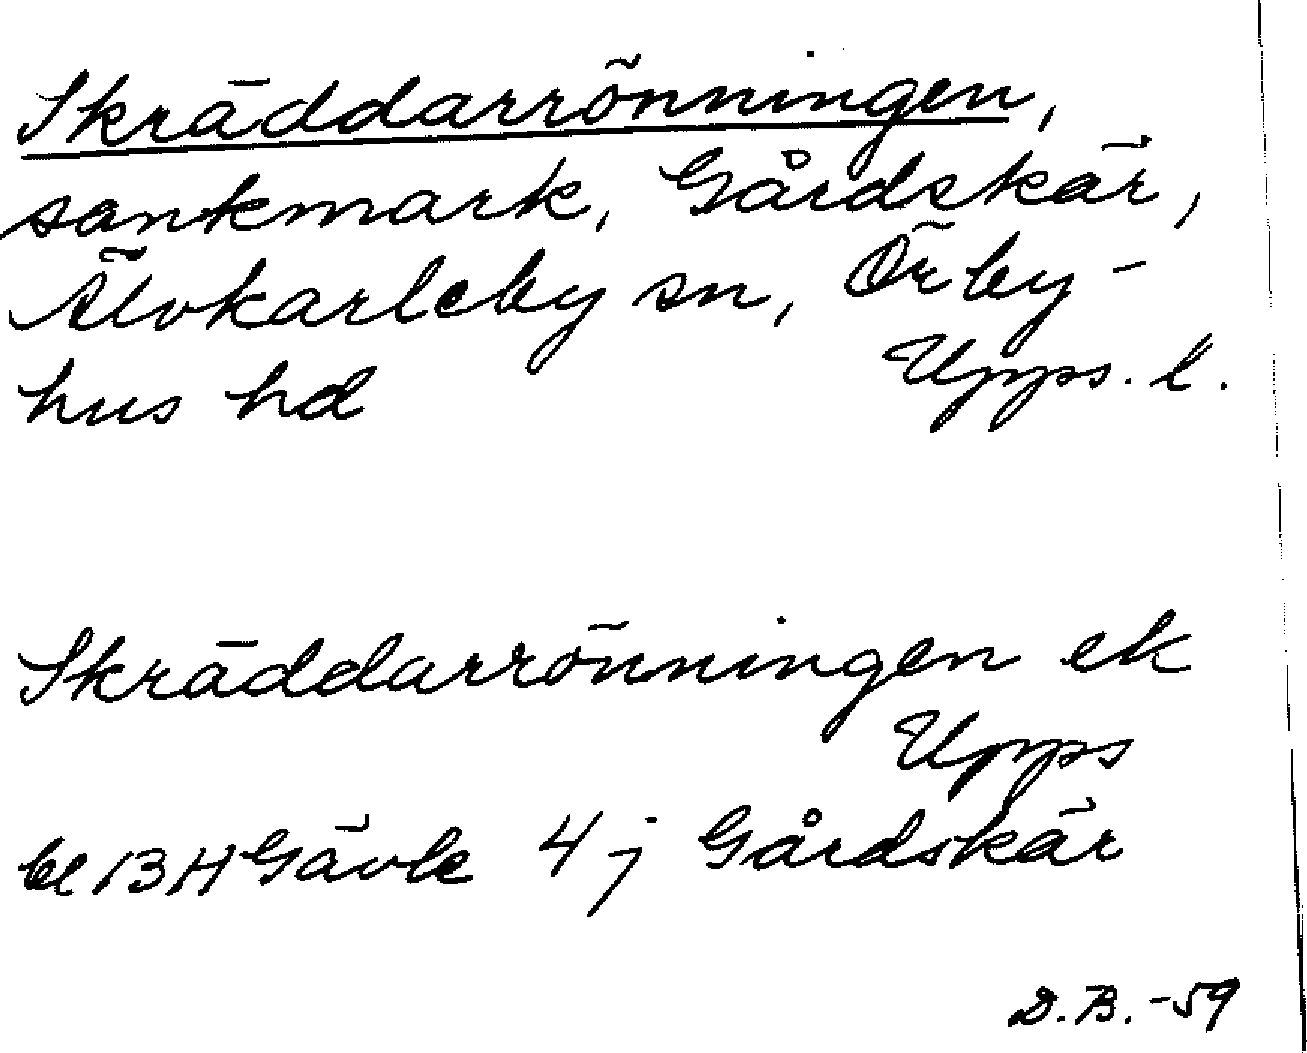 Skräddarrönningen,
sankmark, Gårdskär,
Älvkarleby sn, Örby-
hus hd Upps. l.
Skräddarrönningen ek
Upps
bl 13H Gävle 4 j Gårdskär
D.B. -59